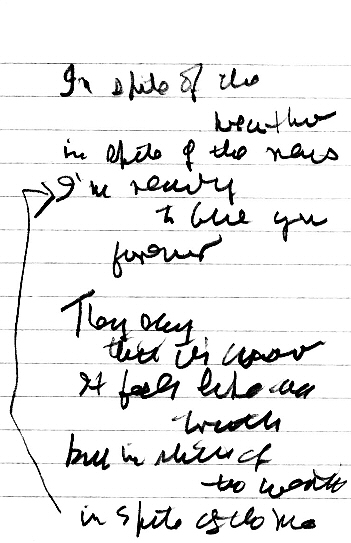 In spite of the
weather
in spite of the news
I'm ready
to love you
forever

They say
that it's
It feels like
but in spite of
in spite of